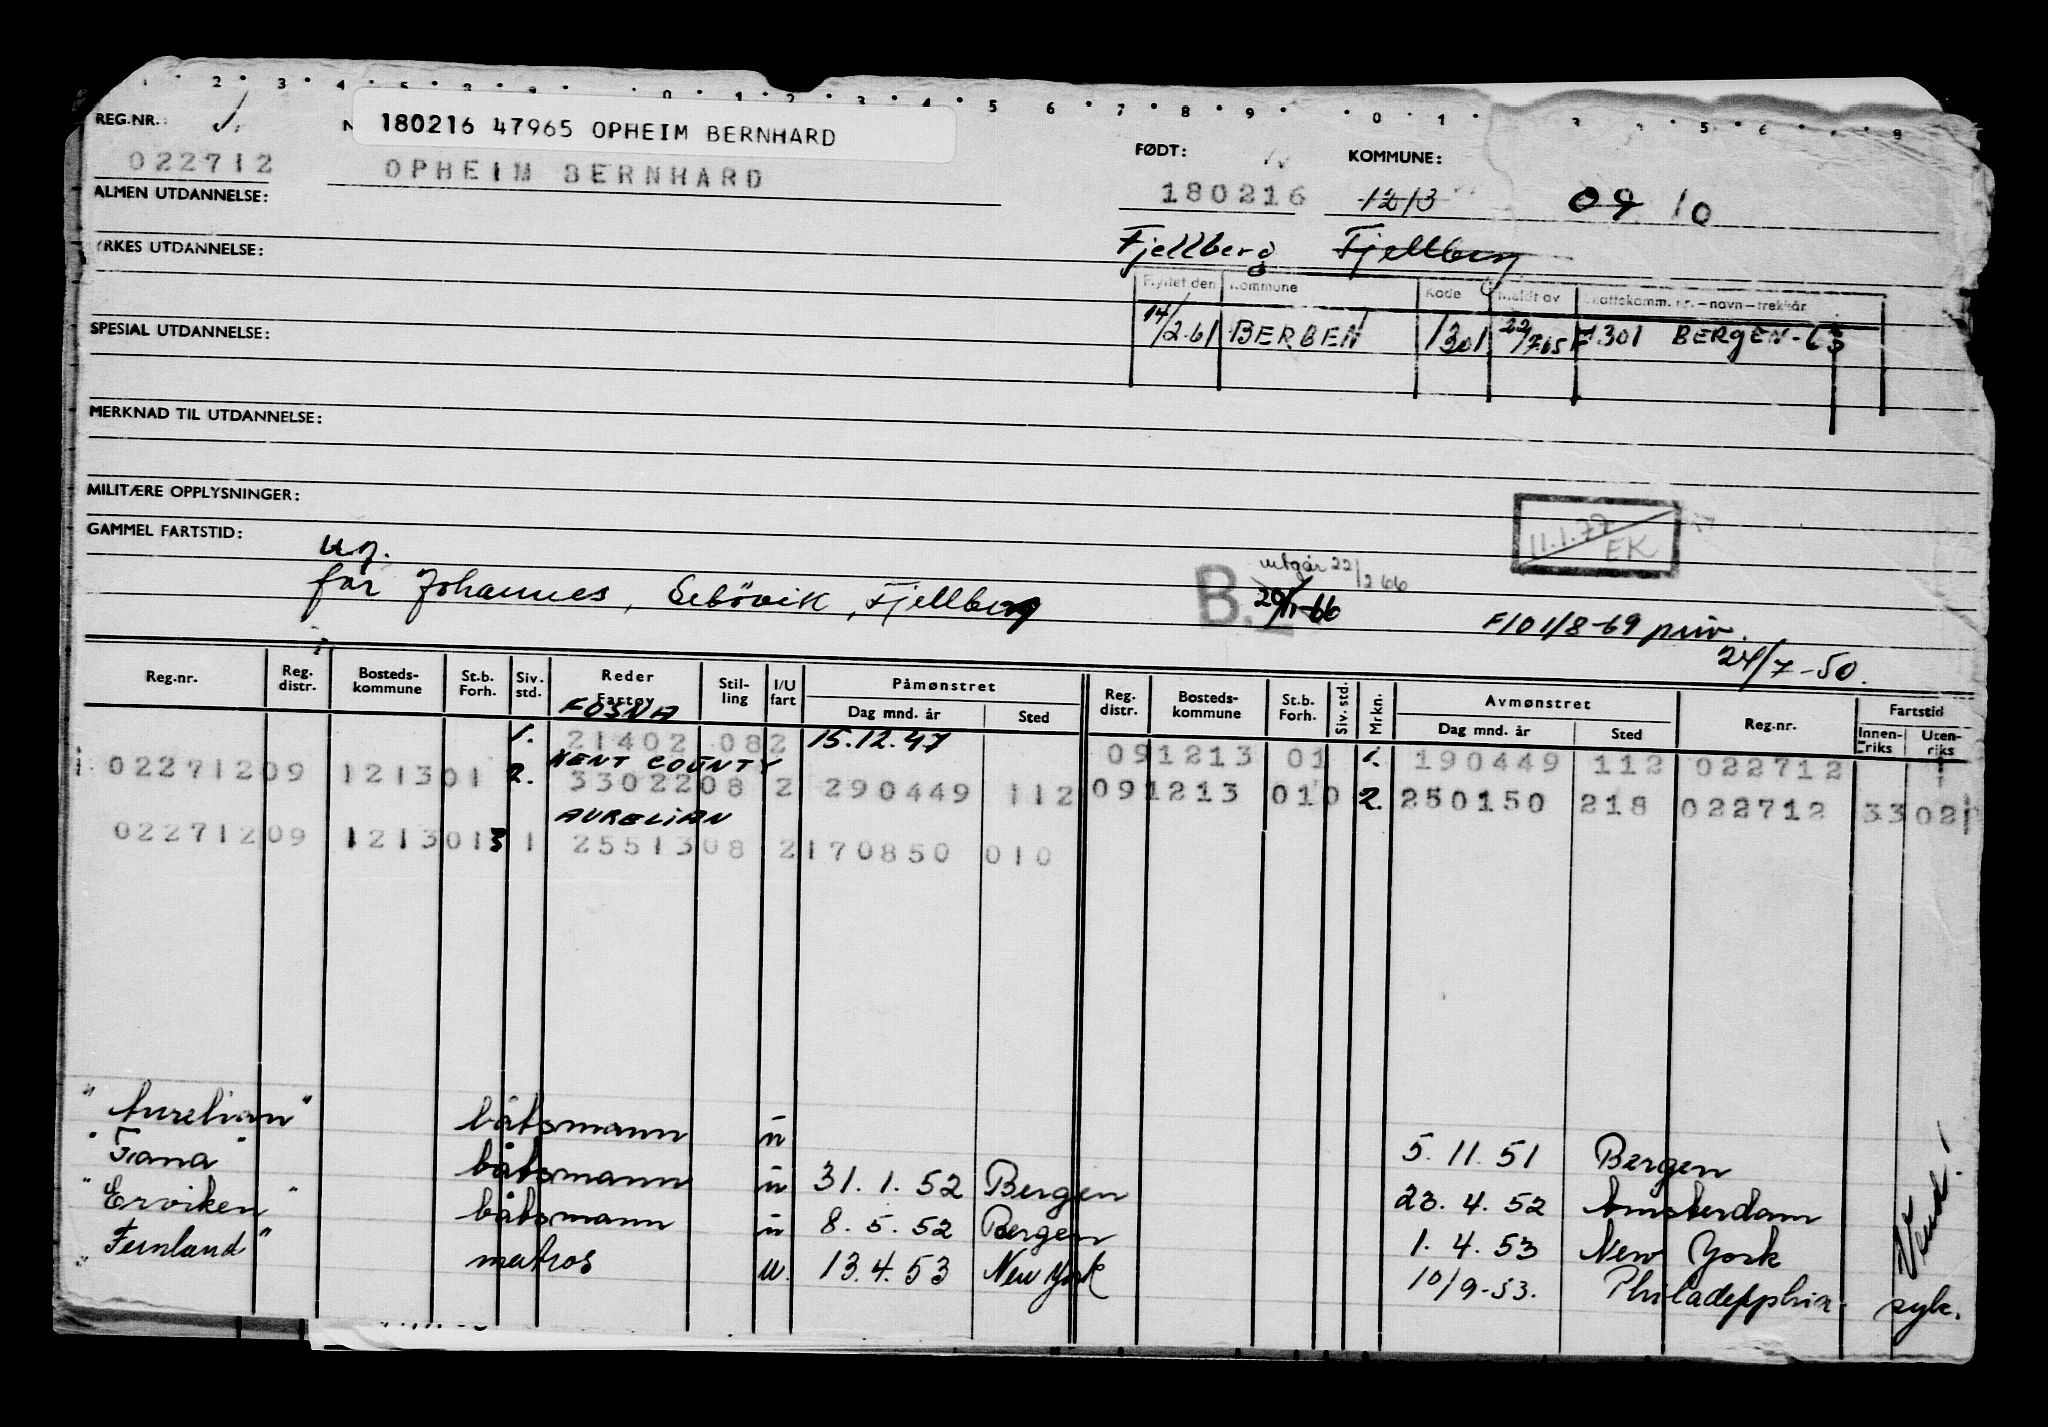 REG.NR.
180216 47965 OPHEIM BERNHARD
FØDT:
KOMMUNE:
022712
OPHEIM BERNHARD
180216
1213
09 10
ALMEN UTDANNELSE:
Fjellberg Fjellberg
YRKES UTDANNELSE:
Flyttet den Kommune Kode Meldt av Skattekomm. nr. – navn – trekkår
14/2.61 BERGEN 1301 22/7.65 1301 BERGEN-65
SPESIAL UTDANNELSE:
MERKNAD TIL UTDANNELSE:
MILITÆRE OPPLYSNINGER:
11.1.77 EK
GAMMEL FARTSTID:
ug.
far Johannes, Sebövik, Fjellberg
B.
utgår 22/2 66
20/1-66
F101/8-69 priv.
24/7-50.
Reg.nr. Reg. distr. Bosteds-kommune St.b. Forh. Siv. std. Reder Fartøy Stil-ling I/U fart Påmønstret Dag mnd. år Sted Reg. distr. Bosteds-kommune St.b. Forh. Siv. std. Mrkn. Avmønstret Dag mnd. år Sted Reg.nr. Fartstid Innen-riks Uten-riks
FOSNA
1. 21402 08 2 15.12.47 09 1213 01 1. 190449 112 022712
KENT COUNTY
022712 09 1213 01 2. 33022 08 2 290449 112 09 1213 010 2. 250150 218 022712 33 02
AURELIAN
022712 09 1213 01 3 1 25513 08 2 170850 010
"Aurelian" båtsmann u 5. 11. 51 Bergen
"Fana" båtsmann u 31. 1. 52 Bergen 23. 4. 52 Amsterdam
"Erviken" båtsmann u 8. 5. 52 Bergen 1. 4. 53 New York
"Fernland" matros u. 13. 4. 53 New York 10/9-53. Philadepphia syk.
Vend!